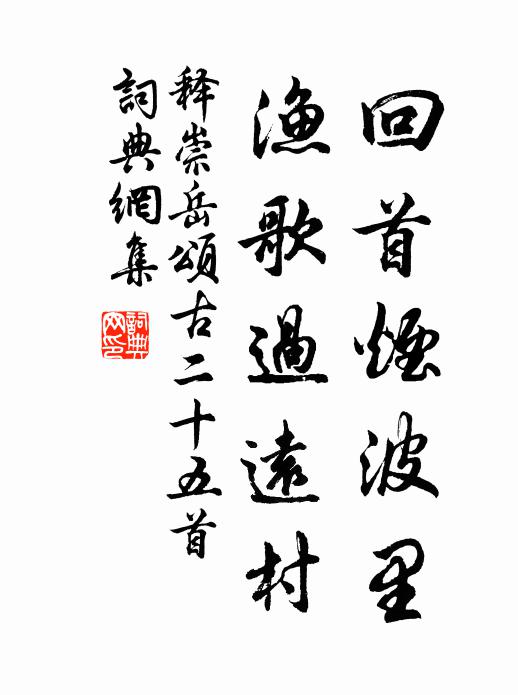 回首煙波里
漁歌過遠村
释崇岳頌古二十五首
詞典網集
詞典網印